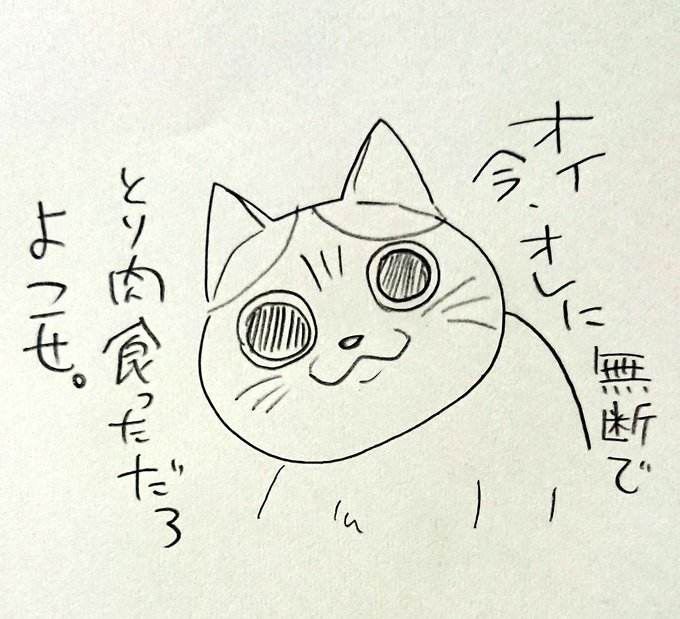 オイ
今、オレに
無断で
とり肉食っただろ
よこせ。